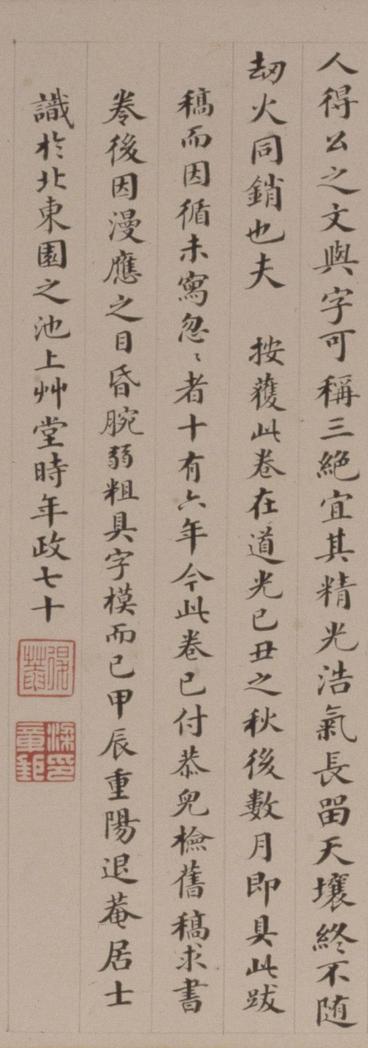 人得公之文與字可稱三絕宜其精光浩氣長留天壤終不随
刼火同銷也夫　按蒦此卷在道光己丑之秋後數月即具此跋
稿而因循未寫忽〻者十有六年今此卷已付恭兒檢舊稿求書
卷後因漫應之目昏腕弱粗具字模而已甲辰重陽退菴居士
識於北東園之池上艸堂時年政七十
梁章鉅印